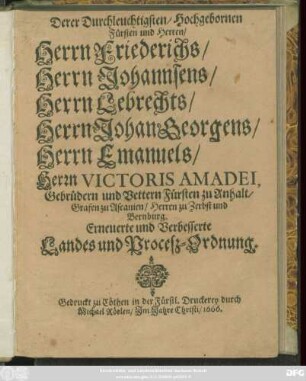 Derer Durchleuchtigsten / Hochgebornen
Fürsten und Herren /
Herrn Friederichs /
Herrn Johannsens /
Herrn Lebrechts /
Herrn Johan Georgens /
Herrn Emanuels /
Herrn VICTORIS AMADEI,
Gebrüdern und Vettern Fürsten zu Anhalt /
Grafen zu Ascanien / Herren zu Zerbst und
Bernburg.
Erneuerte und Verbesserte
Landes und Proceß-Ordnung.
Gedruckt zu Cöthen in der Fürstl. Druckerey durch
Michael
Im Jahre Christi / 1666.